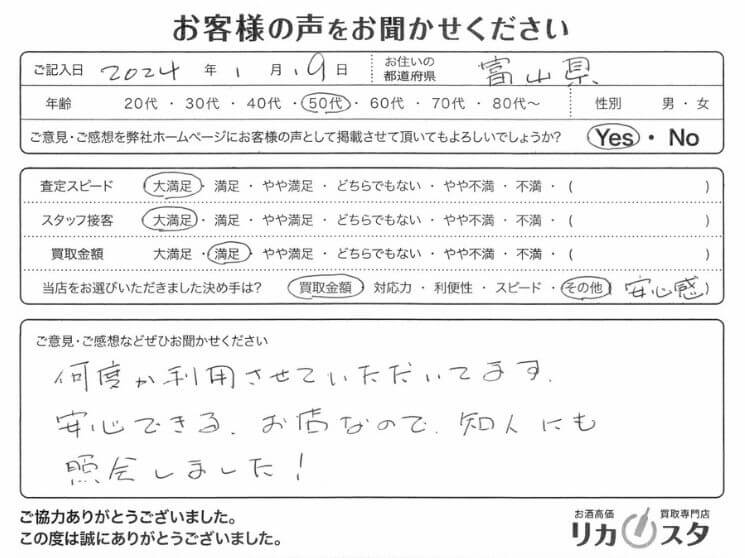 お客様の声をお聞かせください
ご記入日 2024 年 1 月 19 日 お住いの都道府県 富山県
年齢 20代 ・ 30代 ・ 40代 ・ 50代 ・ 60代 ・ 70代 ・ 80代～ 性別 男 ・ 女
ご意見・ご感想を弊社ホームページにお客様の声として掲載させて頂いてもよろしいでしょうか? Yes ・ No
査定スピード 大満足 ・ 満足 ・ やや満足 ・ どちらでもない ・ やや不満 ・ 不満 ・ ( )
スタッフ接客 大満足 ・ 満足 ・ やや満足 ・ どちらでもない ・ やや不満 ・ 不満 ・ ( )
買取金額 大満足 ・ 満足 ・ やや満足 ・ どちらでもない ・ やや不満 ・ 不満 ・ ( )
当店をお選びいただきました決め手は? 買取金額 ・ 対応力 ・ 利便性 ・ スピード ・ その他 ( 安心感 )
ご意見・ご感想などぜひお聞かせください
何度か利用させていただいてます.
安心できる.お店なので.知人にも
照会しました!
ご協力ありがとうございました。
この度は誠にありがとうございました。
お酒高価 買取専門店
リカスタ